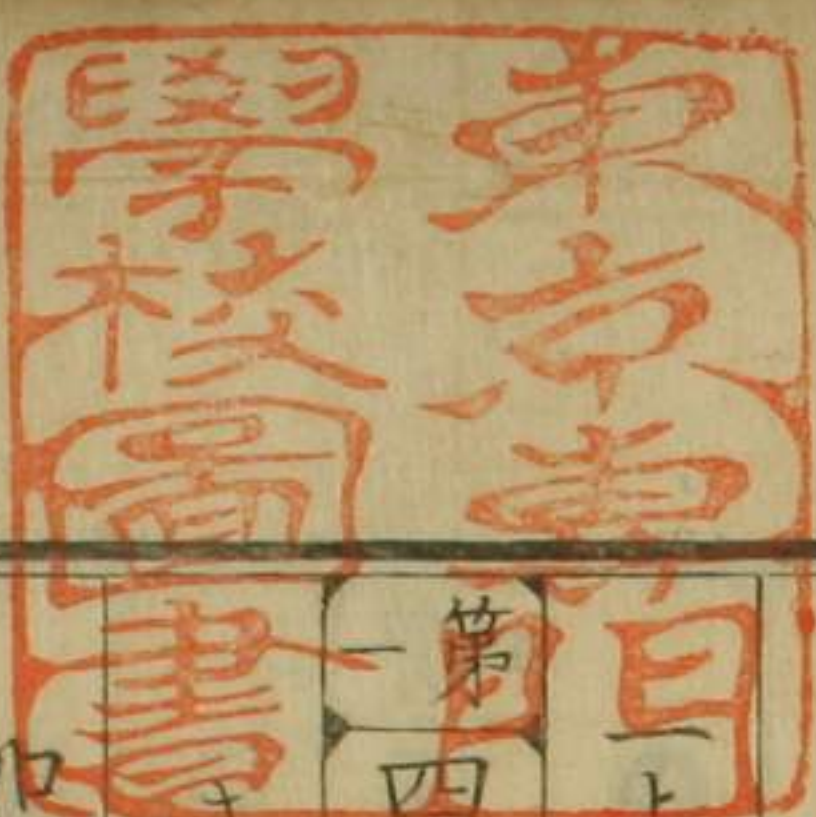 東京專門
學校圖書
第一
四